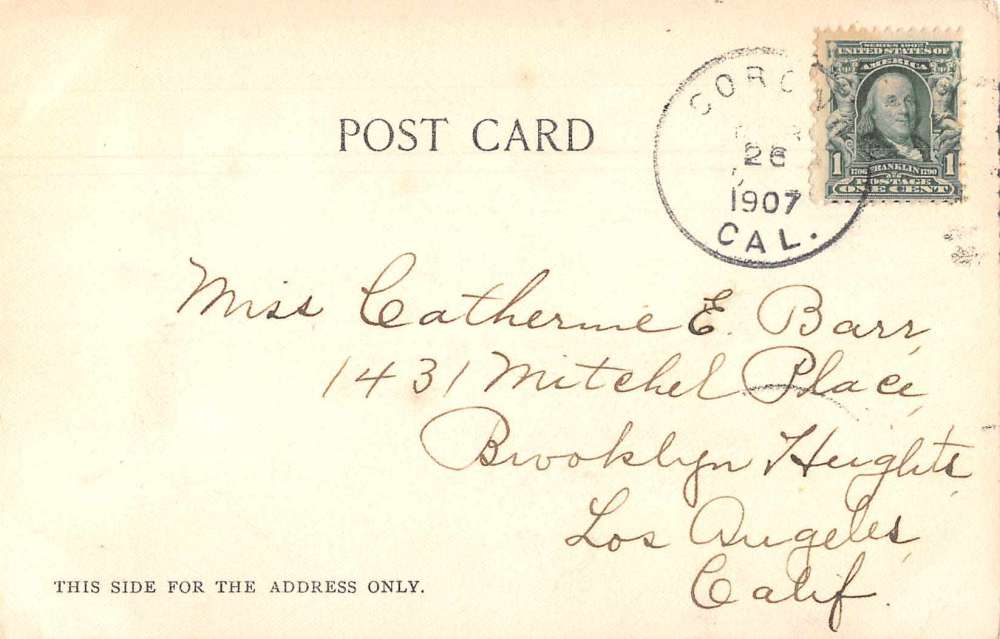 SERIES 1902
UNITED STATES OF
AMERICA
1 1
1706 FRANKLIN 1790
POSTAGE
ONE CENT
26
1907
CAL.
POST CARD
Miss Catherine E. Barr,
1431 Mitchel Place,
Brooklyn Heights,
Los Angeles,
Calif.
THIS SIDE FOR THE ADDRESS ONLY.